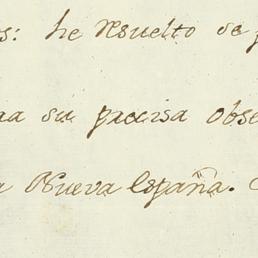 s: he resuelto de p
aa su precisa obse
a Nueva España.